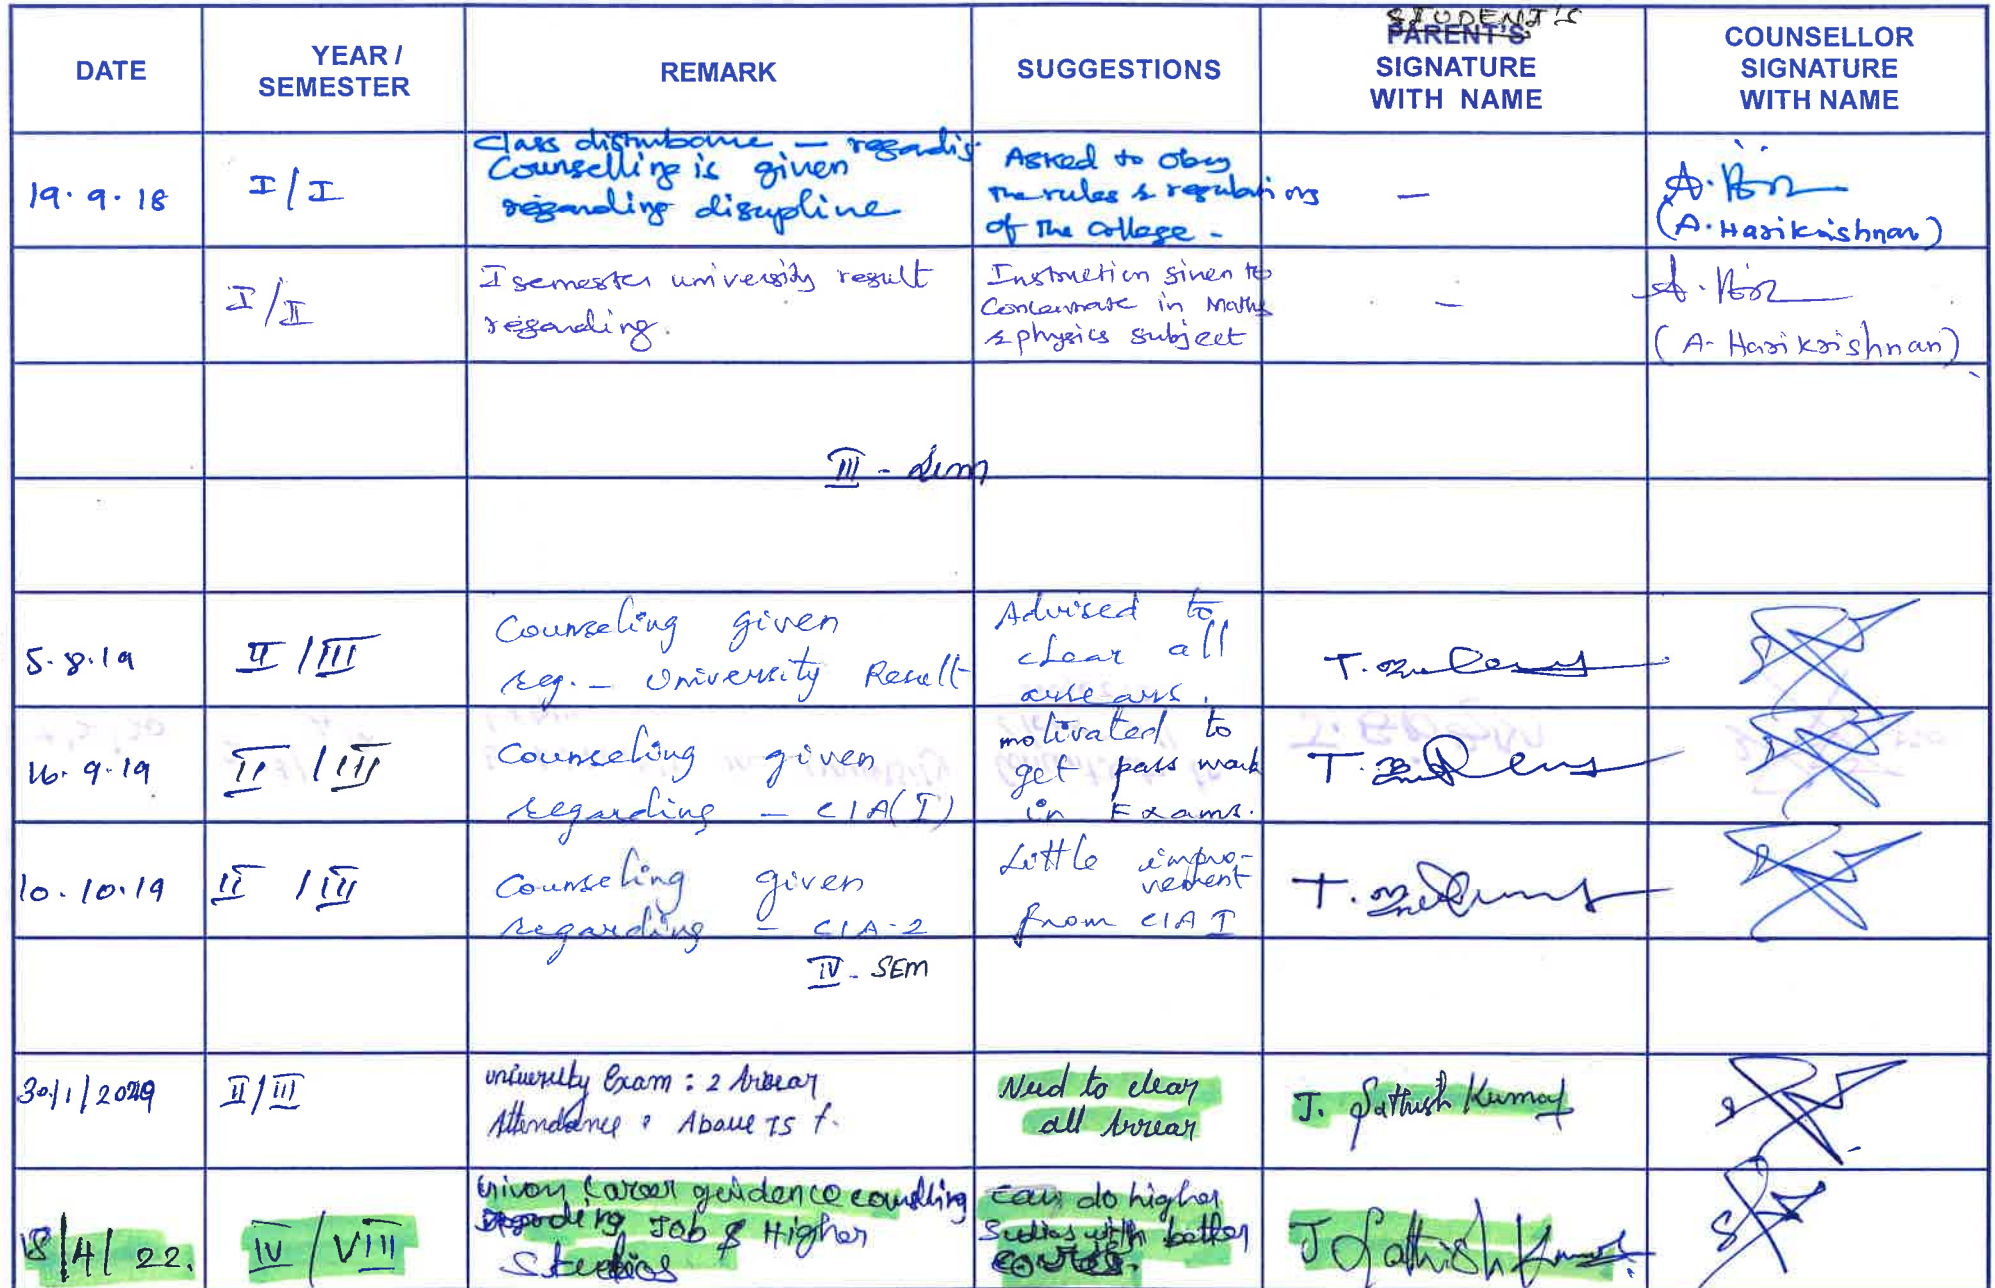 DATE
YEAR /
SEMESTER
REMARK
SUGGESTIONS
STUDENT'S
PARENT'S
SIGNATURE
WITH NAME
COUNSELLOR
SIGNATURE
WITH NAME
19.9.18
I/I
Class disturbance – regardig
Counselling is given
regarding discipline
Asked to obey
the rules & regulations
of the college -
–
A.
(A. Harikrishnan)
I/II
I semester university result
regarding.
Instruction given to
Concentrate in Maths
& physics subject
–
A.
(A. Harikrishnan)
III - Sem
5.8.19
II/III
Counseling given
reg. – University Result
Advised to
clear all
arrears.
T.
16.9.19
II/III
Counseling given
regarding – CIA(I)
motivated to
get pass mark
in Exams.
T.
10.10.19
II/III
Counseling given
regarding – CIA-2
Little impro-
vement
from CIA I
T.
IV - SEM
30/1/20
II/III
University Exam : 2 Arrear
Attendance : Above 75 %.
Need to clear
all Arrear
J. Sathish Kumar
18/4/22.
IV/VIII
Given Career guidence counslling
regarding Job & Higher
Studies
Can do higher
Studies with better
J Sathish Kumar.